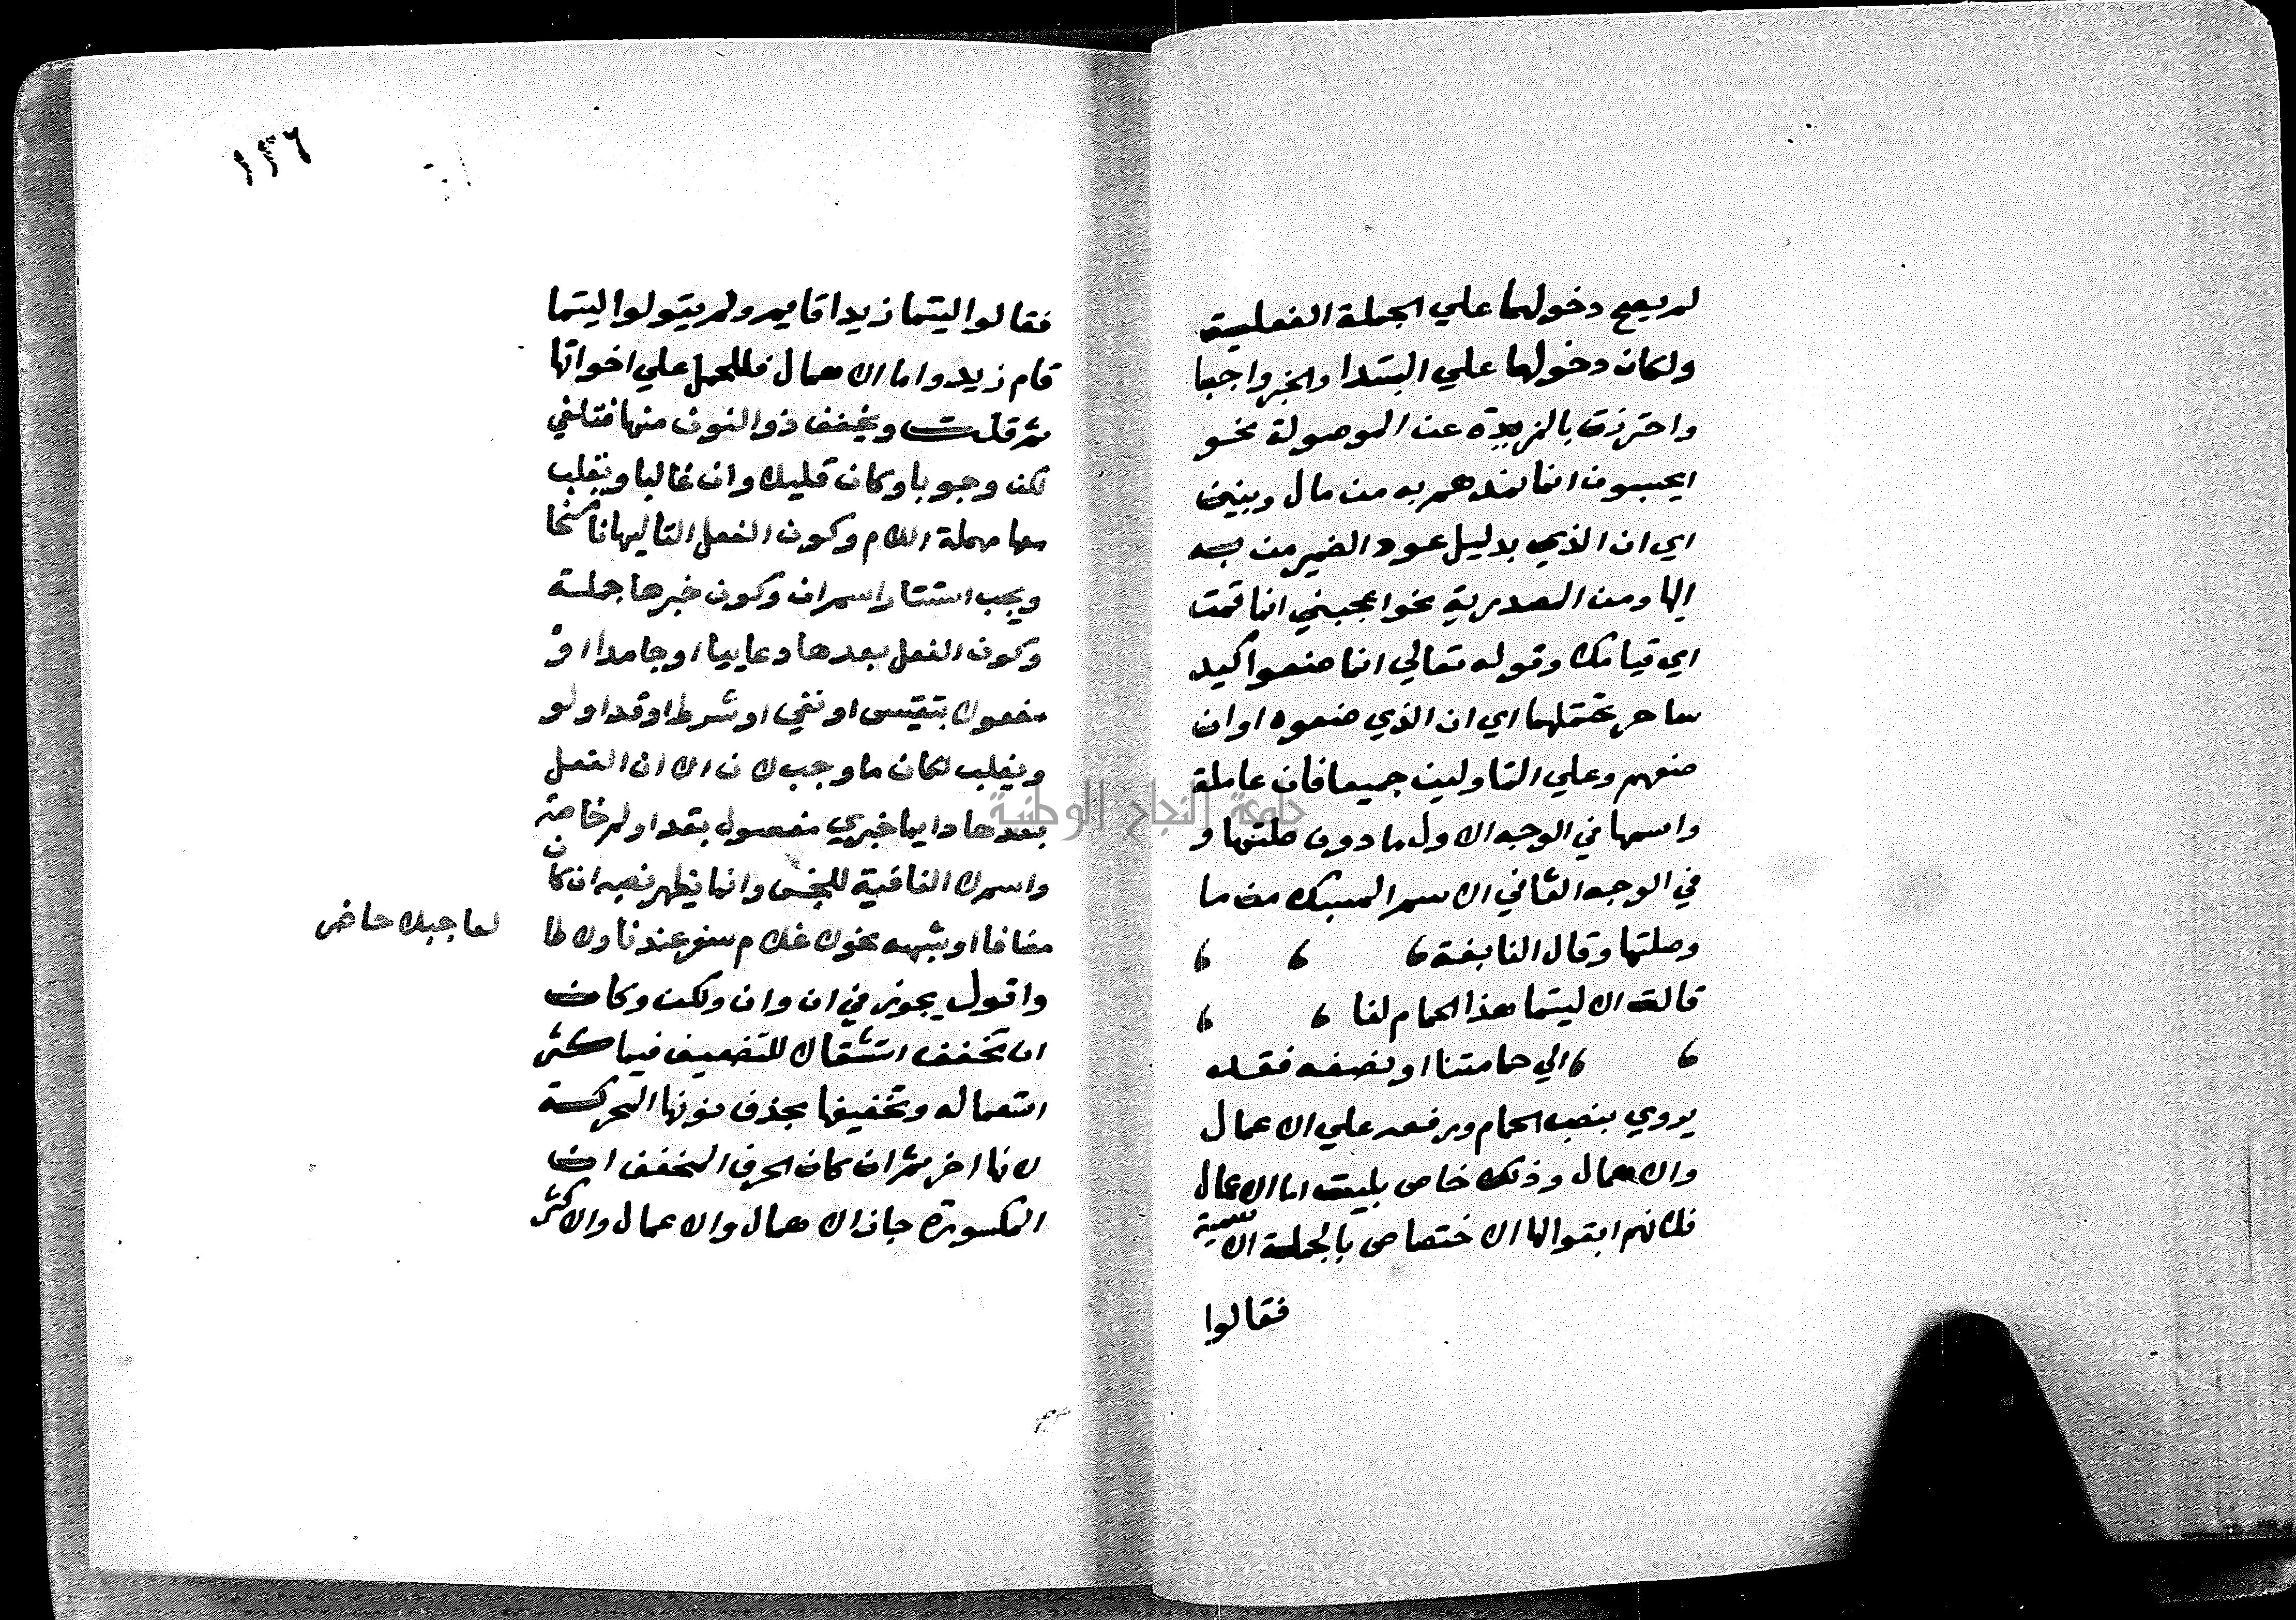 لم يصح دخولهما علي الجملة الفعلية
ولكان دخولهما علي المبتدا والخبر واجبا
واحترزت بالمزيدة عن الموصولة نحو
ايحسبون انما نمدهم به من مال وبنين
اي ان الذي بدليل عود الضمير من به
اليها ومن المصدرية نحو اعجبني انما قمت
اي قيامك وقوله تعالي انما صنعوا كيد
ساحر يحتملهما اي ان الذي صنعوه او ان
صنعهم وعلي التاولين جميعا فان عاملة
واسمها في الوجه الاول ما دون صلتها و
في الوجه الثاني الاسم المسبك من ما
وصلتها وقال النابغة
قالت الا ليتما هذا الحمام لنا
الي حمامتنا او نصفه فقد
يروي بنصب الحمام ورفعه علي الاعمال
والاهمال وذلك خاص بليت اما الاعمال
فلانهم ابقوا لها الاختصاص بالجملة الاسمية
فقالوا
١٣٦
فقالوا ليتما زيدا قايم ولم يقولوا ليتما
قام زيد واما الاهمال فللحمل علي اخواتها
ثم قلت ويخفف ذو النون منها فتلغي
لكن وجوبا وكان قليلا وان غالبا ويغلب
معها مهملة اللام وكون الفعل التاليها ناسخا
ويجب استتار اسم ان وكون خبرها جملة
وكون الفعل بعدها دعاييا او جامدا او
مفصولا بتنفيس او نفي او شرط او قد او لو
ويغلب لكان ما وجب لان الا ان الفعل
بعدها دايما خبري مفصول بقد او لم خاصة
واسم لا النافية للجنس وانما يظهر نصبه ان كان
مضافا او شبهه نحو لا غلام سفر عندنا ولا طا
لعا جبلا حاضر
واقول يجوز في ان وان ولكن وكان
ان تخفف استثقالا للتضعيف فيما كثر
استعماله وتخفيفها بحذف نونها المحركة
لانها اخر ثم ان كان الحرف المخفف ان
المكسورة جاز الاهمال والاعمال والاكثر
جامعة النجاح الوطنية